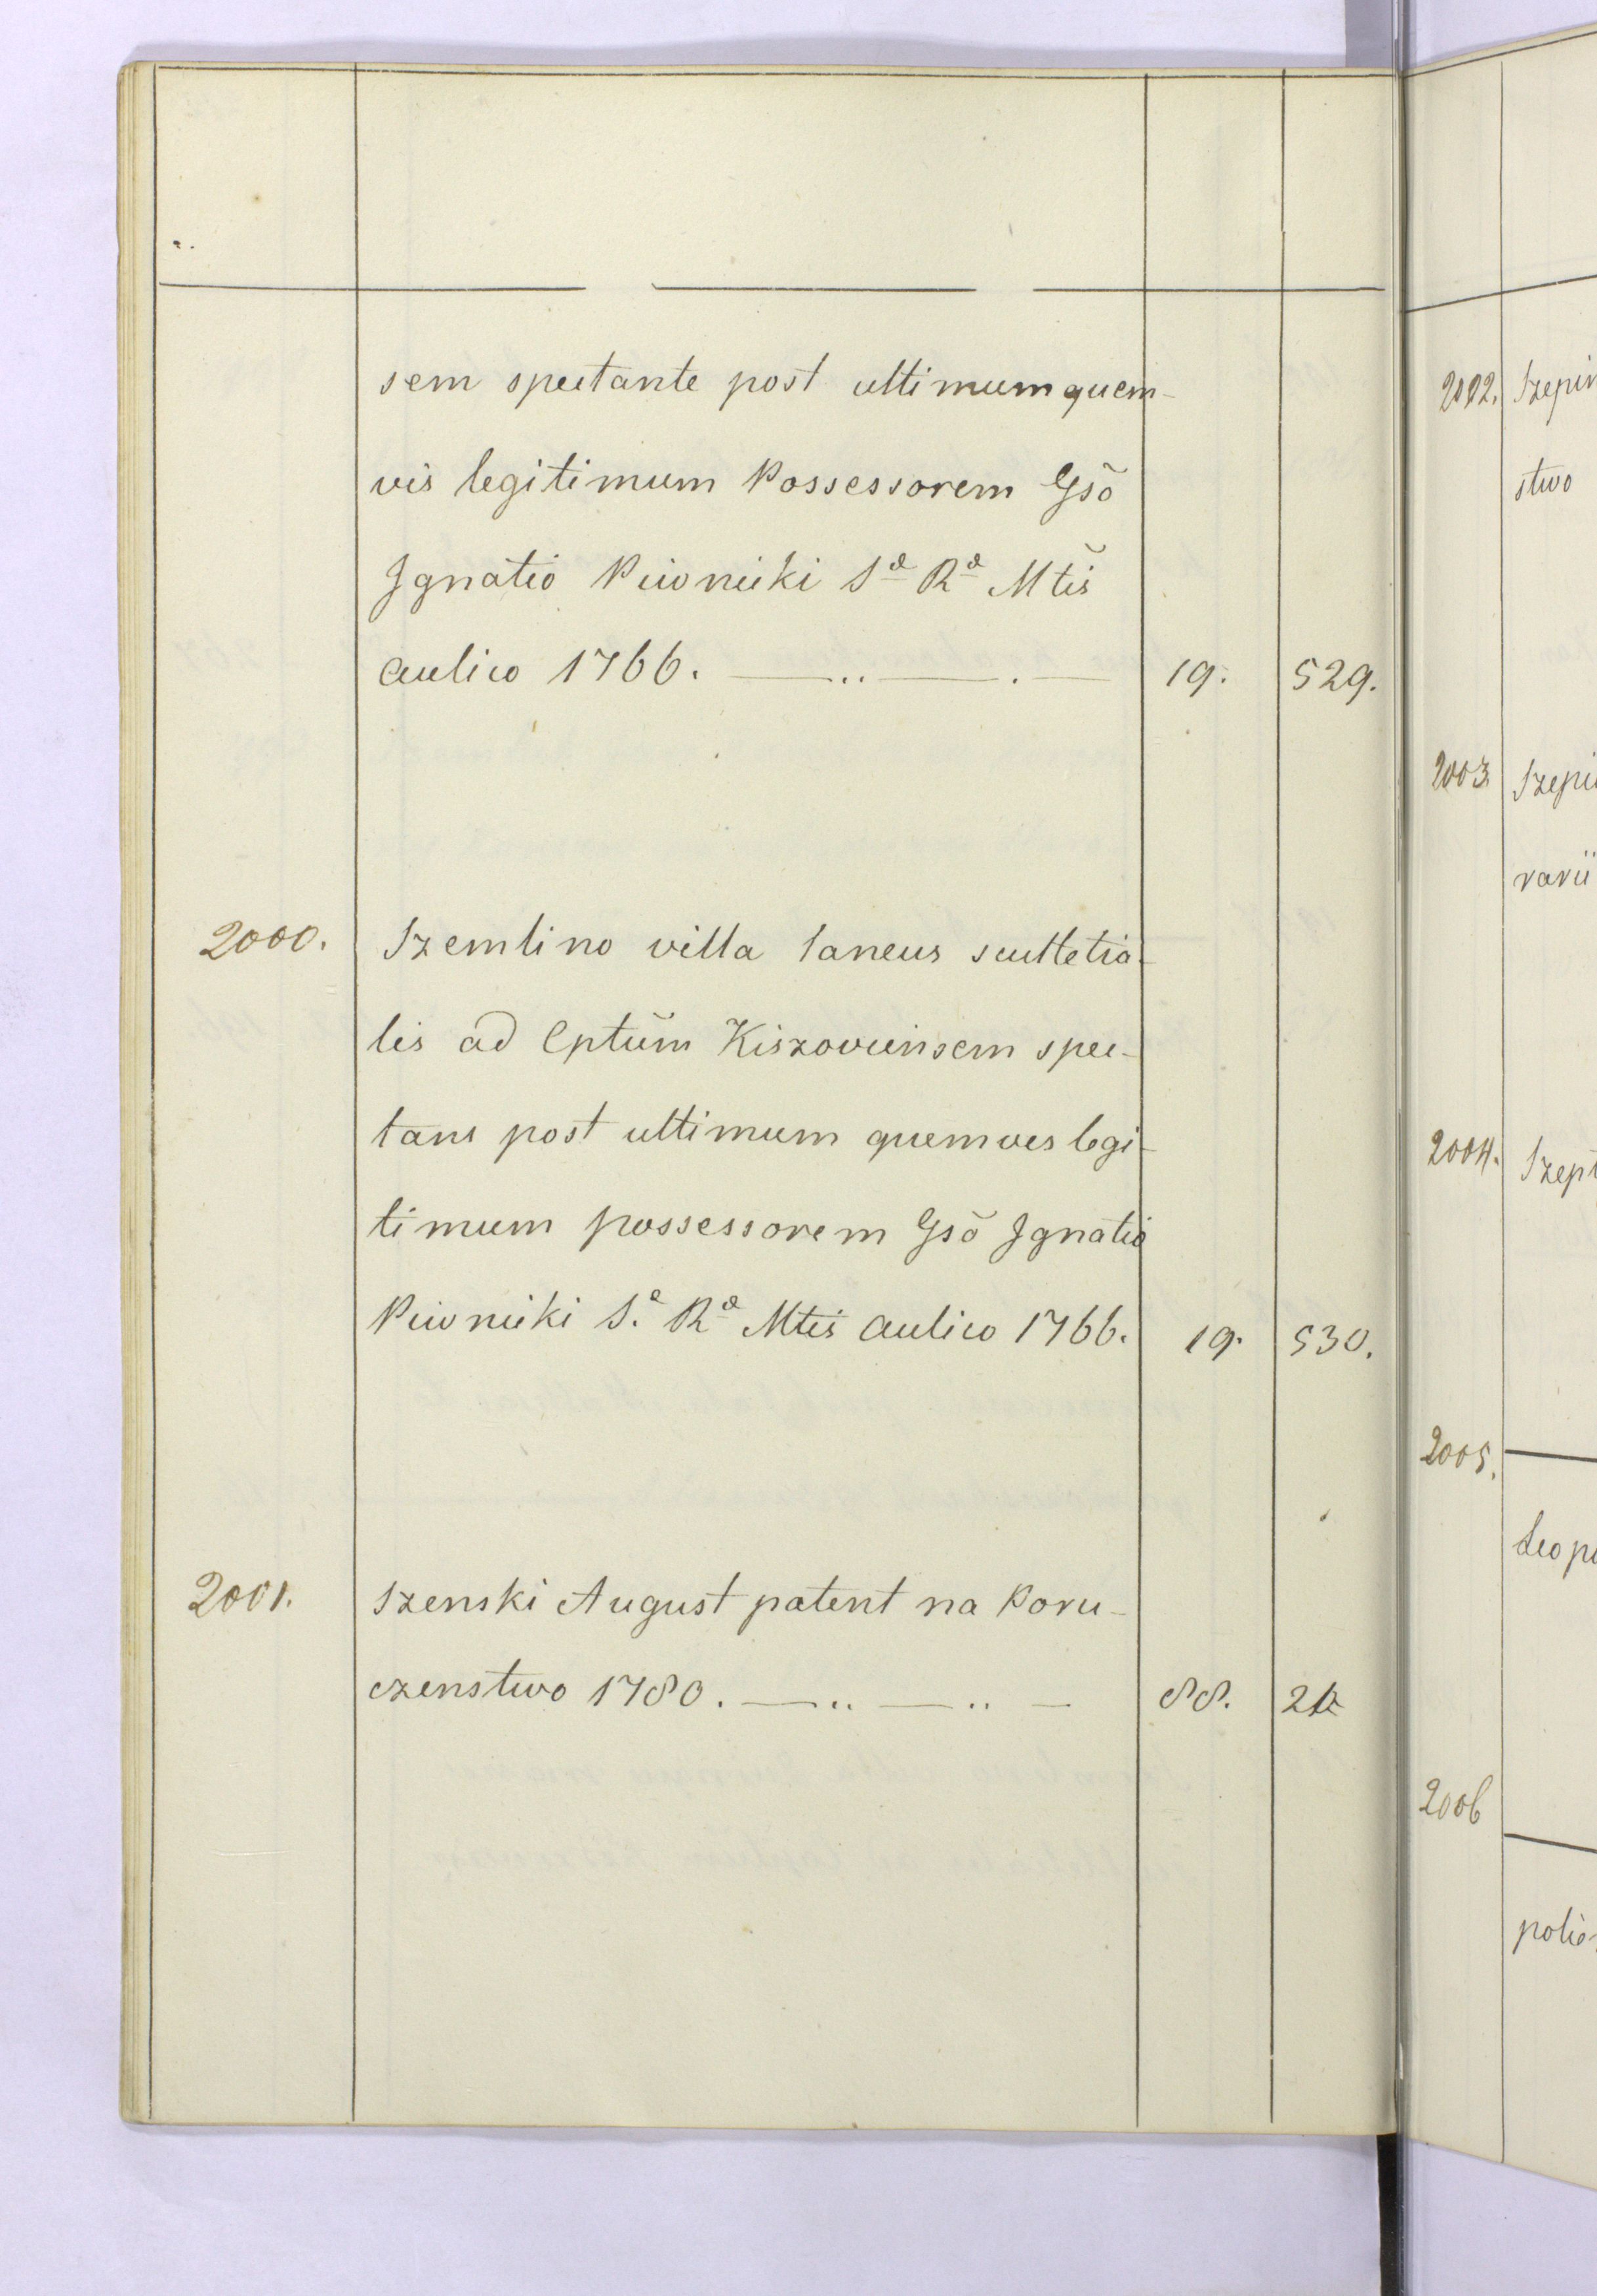 sem spectante post ultimum quem-
vis legitimum Possessorem Gsõ
Ignatio Piwnicki Sᵃ Rᵃ Mtis̃
aulico 1766. —..— . — 19. 529.
2000. Szemlino villa laneus scultetia-
lis ad Cptũm Kiszoviensem spec-
tans post ultimum quemvis legi-
timum possessorem Gsõ Ignatio
Piwnicki S.ᵃ Rᵃ Mtis aulico 1766. 19. 530.
2001. Szenski August patent na Poru-
czenstwo 1780. —..—..— 88.
2002. Szepin
stwo
2003 Szepi
rarii
2004. Szept
2005. —
Leopo
2006 —
polie